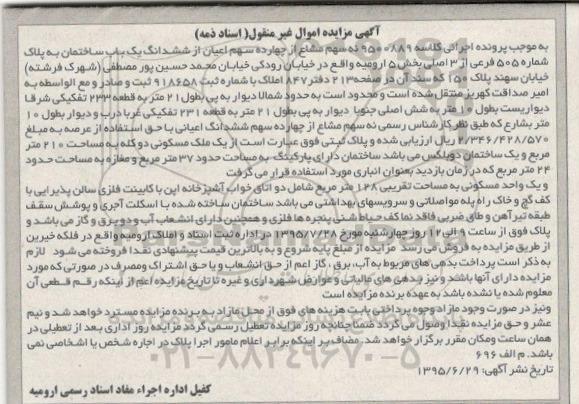 آگهی مزایده اموال غیر منقول( اسناد ذمه)
به موجب پرونده اجرائی کلاسه ۹۵۰۰۸۸۹ نه سهم مشاع از چهارده سهم اعیان از ششدانگ یک باب ساختمان به پلاک
شماره ۵۰۵ فرعی از ۳ اصلی بخش ۵ ارومیه واقع در خیابان رودکی خیابان محمد حسین پور مصطفی (شهرک فرشته)
خیابان سهند پلاک ۱۵۰ که سند آن در صفحه ۲۱۳ دفتر ۸۴۷ املاک با شماره ثبت ۹۱۸۶۵۸ ثبت و صادر و مع الواسطه به
امیر صداقت کهریز منتقل شده است و محدود است به حدود شمالا دیوار به پی بطول ۲۱ متر به قطعه ۲۳۳ تفکیکی شرقا
دیواریست بطول ۱۰ متر به شش اصلی جنوبا دیوار به پی بطول ۲۱ متر به قطعه ۲۳۱ تفکیکی غربا درب و دیوار بطول ۱۰
متر بشارع که طبق نظر کارشناس رسمی نه سهم مشاع از چهارده سهم ششدانگ اعیانی با حق استفاده از عرصه به مبلغ
۲/۳۴۶/۴۲۸/۵۷۰ ریال ارزیابی شده و پلاک ثبتی فوق عبارت است از یک ملک مسکونی دو کله به مساحت ۲۱۰ متر
مربع و یک ساختمان دوبلکس می باشد ساختمان دارای پارکینگ به مساحت حدود ۳۷ متر مربع و مغازه به مساحت حدود
۲۴ متر مربع که در زمان بازدید بعنوان انباری مورد استفاده قرار می گرفت
و یک واحد مسکونی به مساحت تقریبی ۱۲۸ متر مربع شامل دو اتاق خواب آشپزخانه اپن با کابینت فلزی سالن پذیرایی با
کف گچ و خاک راه پله موزاییلاتی و سرویسهای بهداشتی می باشد ساختمان ساخته شده با اسکلت آجری و پوشش سقف
طبقه تیرآهن و طاق ضربی فاقد نما کف حیاط شنی پنجره ها فلزی و همچنین دارای انشعاب آب و دو برق و گاز می باشد و
پلاک فوق از ساعت ۹ الی ۱۲ روز چهارشنبه مورخ ۱۳۹۵/۷/۲۸ در اداره ثبت اسناد و املاک ارومیه واقع در فلکه خیرین
از طریق مزایده به فروش می رسد مزایده از مبلغ پایه شروع و به بالاترین قیمت پیشنهادی نقدا فروخته می شود لازم
به ذکر است پرداخت بدهی های مربوط به آب، برق، گاز اعم از حق انشعاب و یا حق اشتراک و مصرف در صورتی که مورد
مزایده دارای آنها باشد و نیز بدهی های مالیاتی و عوارض شهرداری و غیره تا تاریخ مزایده اعم از اینکه رقم قطعی آن
معلوم شده یا نشده باشد به عهده برنده مزایده است
ونیز در صورت وجود مازاد وجوه پرداختی بابت هزینه های فوق از محل مازاد به برنده مزایده مسترد خواهد شد و نیم
عشر و حق مزایده نقدا وصول می گردد ضمنا چنانچه روز مزایده تعطیل رسمی گردد مزایده روز اداری بعد از تعطیلی در
همان ساعت ومکان مقرر برگزار خواهد شد. مضاف بر اینکه برابر اعلام مامور اجرا پلاک در اجاره شخص یا اشخاصی نمی
باشد. م الف ۶۹۶
تاریخ نشر آگهی: ۱۳۹۵/۶/۲۹
کفیل اداره اجراء مفاد اسناد رسمی ارومیه
۰۲۱-۸۸۳۴۹۶۷۰-۵